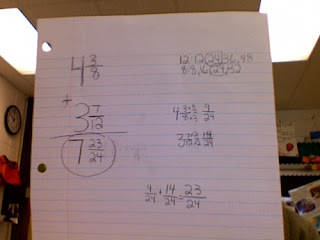 4 3/8
+
3 7/12
7 23/24
12: 12, 24, 36, 48
8: 8, 16, 24, 32
4 3×3/8×3 9/24
3 7×2/12×2 14/24
9/24 + 14/24 = 23/24